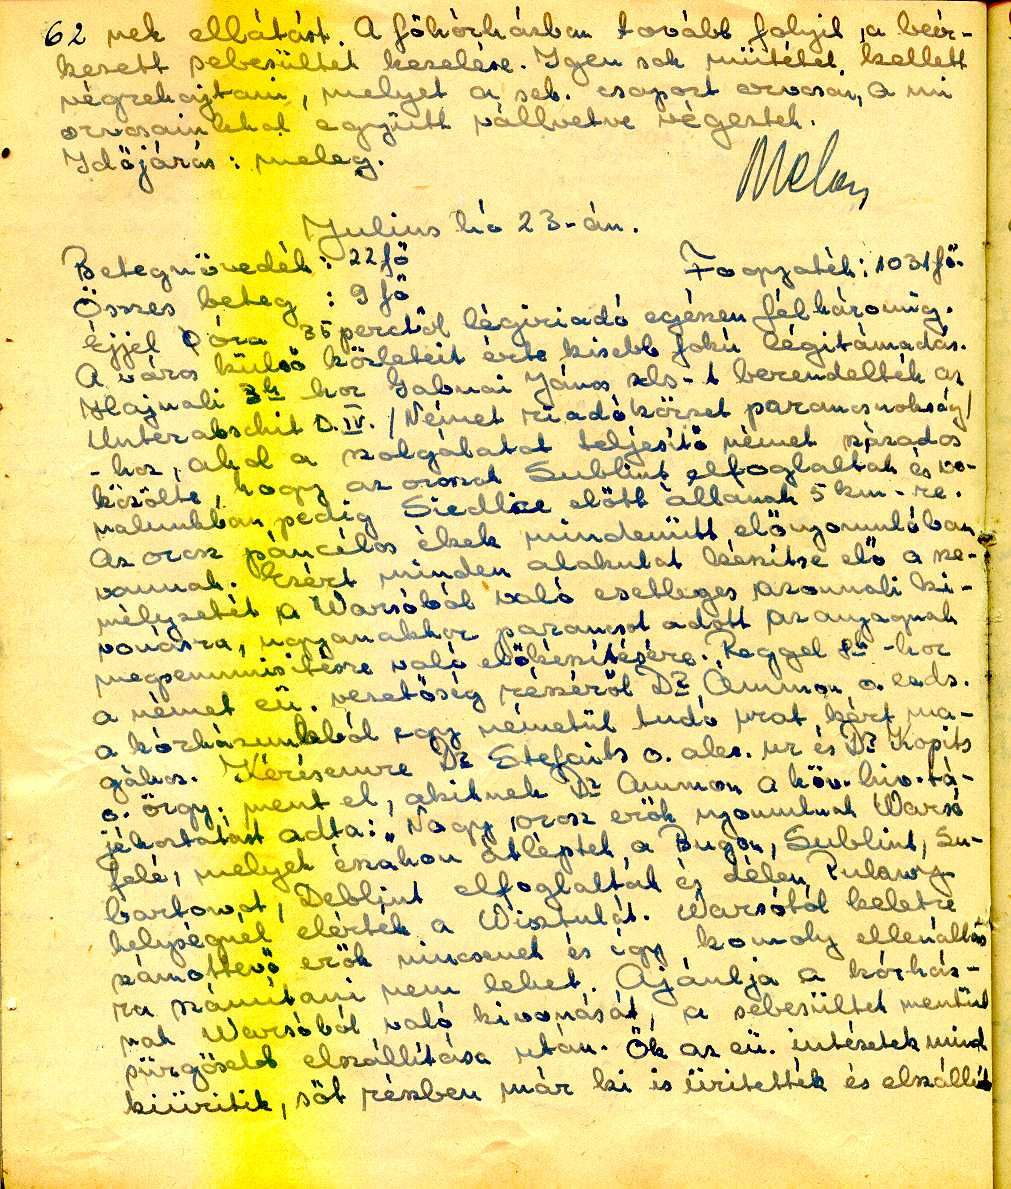 62 nek ellátást. A főkórházban tovább folyik a beér-
kezett sebesültek kezelése. Igen sok műtétet kellett
végrehajtani, melyet a seb. csoport orvosai, a mi
orvosainkkal együtt vállvetve végeztek.
Időjárás: meleg.
Julius hó 23-án.
Betegnövedék: 22 fő Fogyaték: 1031 fő.
Összes beteg : 9 fő
Éjjel 0 óra 35 perctől légiriadó egészen fél háromig.
A város külső közleteit érte kisebb fokú légitámadás.
Hajnali 3h kor János zls-t berendelték az
Unterabschit D.IV. /Német riadókörzet parancsnokság/
-hoz, ahol a szolgálatot teljesítő német százados
közölte, hogy az oroszok Lublint elfoglalták és vo-
nalunkban pedig Siedlce előtt állanak 5 km-re.
Az orosz páncélos ékek mindenütt előnyomulóban
vannak. Ezért minden alakulat készítse elő a sze-
mélyzetét a Warsóból való esetleges azonnali ki-
vonásra, ugyanakkor parancsot adott az anyagnak
megsemmisítésre való előkészítésére. Reggel 8h -kor
a német eü. vezetőség részéről Dr Ammon o. eds.
a kórházunkból egy németül tudó urat kért ma-
gához. Kérésemre Dr Stefaits o. ales. ur és Dr Kopits
o. őrgy. ment el, akiknek Dr Ammon a köv. hiv. tá-
jékoztatást adta: "Nagy orosz erők nyomulnak Warsó
felé, melyek északon átléptek a Bugon, Lublint, Lu-
bartowot, Deblint elfoglalták és délen Pulawy
helységnél elérték a Wisztulát. Warsótól keletre
számottevő erők nincsenek és így komoly ellenállás
ra számítani nem lehet. Ajánlja a kórház-
nak Warsóból való kivonását, a sebesültek mentül
sürgősebb elszállítása után. Ők az eü. intézetek mind
kiürítik, sőt részben már ki is ürítették és elszállít